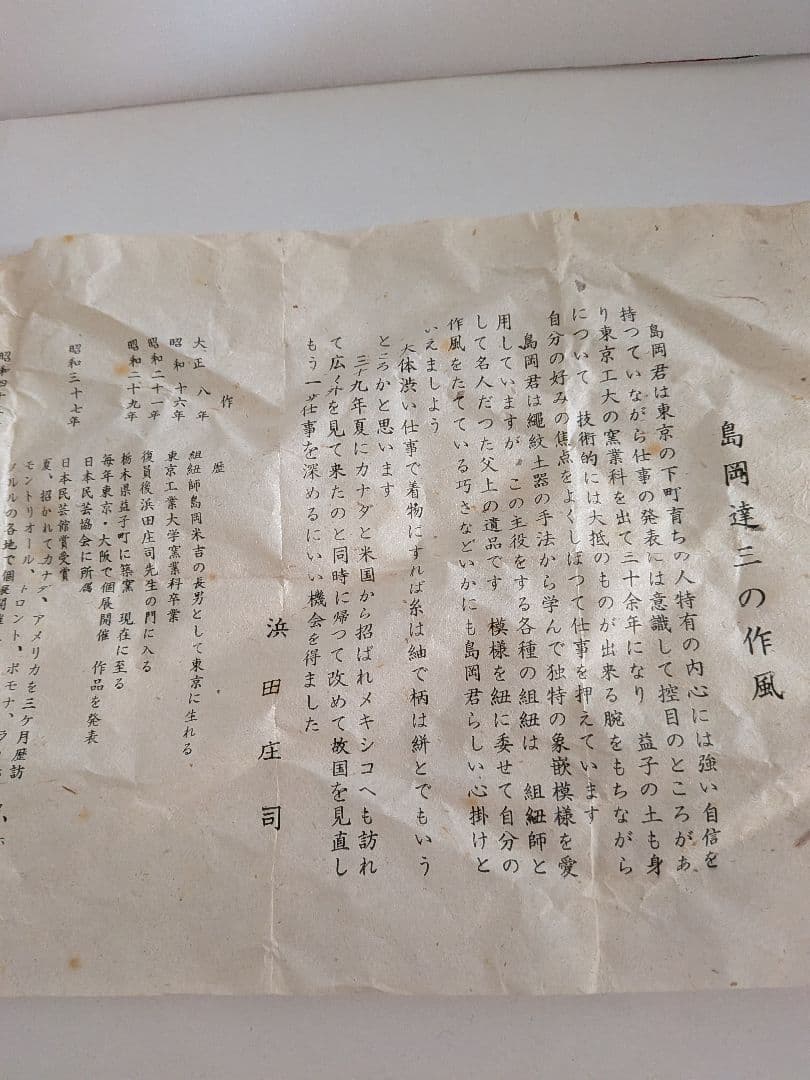 島岡達三の作風
島岡君は東京の下町育ちの人特有の内心には強い自信を
持つていながら仕事の発表には意識して控目のところがあ
り東京工大の窯業科を出て三十余年になり 益子の土も身
について 技術的には大抵のものが出来る腕をもちながら
自分の好みの焦点をよくしぼつて仕事を押えています
島岡君は縄紋土器の手法から学んで独特の象嵌模様を愛
用していますが この主役をする各種の組紐は 組紐師と
して名人だつた父上の遺品です 模様を紐に委せて自分の
作風をたてている巧さなどいかにも島岡君らしい心掛けと
いえましよう
大体渋い仕事で着物にすれば糸は紬で柄は絣とでもいう
ところかと思います
三十九年夏にカナダと米国から招ばれメキシコへも訪れ
て広く外を見て来たのと同時に帰つて改めて故国を見直し
もう一ッ仕事を深めるにいい機会を得ました
浜田庄司
作歴
大正八年 組紐師島岡米吉の長男として東京に生れる、
昭和十六年 東京工業大学窯業科卒業
昭和二十一年 復員後浜田庄司先生の門に入る
昭和二十九年 栃木県益子町に築窯 現在に至る
毎年東京・大阪で個展開催 作品を発表
日本民芸協会に所属
昭和三十七年 日本民芸館賞受賞
夏、招かれてカナダ、アメリカを三ケ月歴訪
モントリオール、トロント、ポモナ、
ルルの各地で個展開催